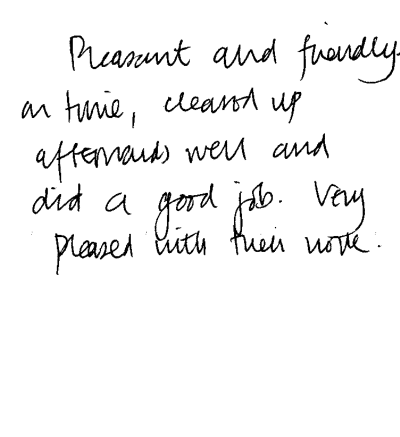 Pleasant and friendly
on time, cleared up
afterwards well and
did a good job. Very
pleased with their work.